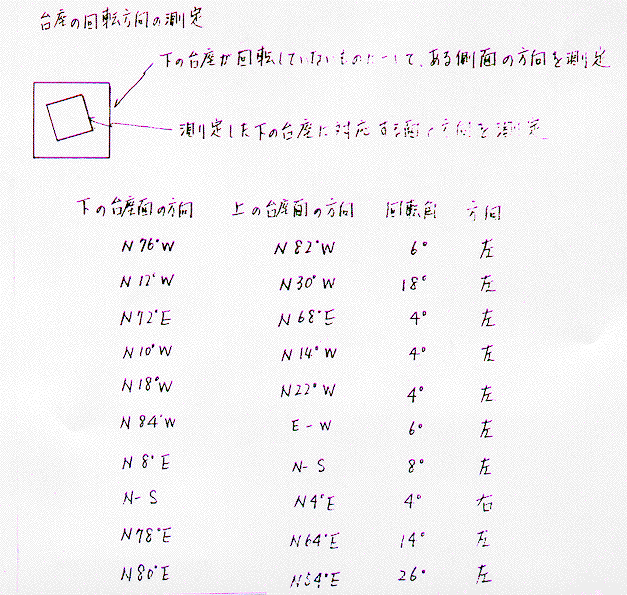 台座の回転方向の測定
下の台座が回転していないものについて、ある側面の方向を測定
測定した下の台座に対応する面の方向を測定
下の台座面の方向 上の台座面の方向 回転角 方向
N76°W N82°W 6° 左
N12°W N30°W 18° 左
N72°E N68°E 4° 左
N10°W N14°W 4° 左
N18°W N22°W 4° 左
N84°W E-W 6° 左
N8°E N-S 8° 左
N-S N4°E 4° 右
N78°E N64°E 14° 左
N80°E N54°E 26° 左